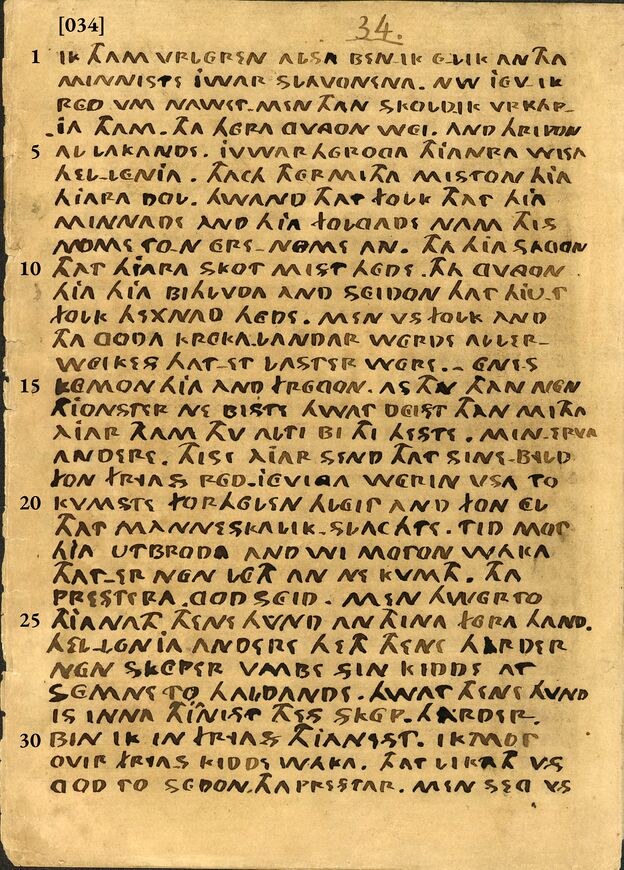 IK THAM VRLEREN ALSA BEN IK ELIK AN THA
MINNISTE JWAR SLAVONENA. NW JEV-IK
RED VM NAWET. MEN THAN SKOLDIK VRKAP-
JA THAM. THA HERA GVNGON WEI. AND HRIPON
AL LAKANDE. JVWAR HEROGA THIANRA WISA
HEL-LENIA. THACH THERMITHA MISTON HJA
HJARA DOL. HWAND THAT FOLK THAT HJA
MINNADE AND HJA FOLGADE NAM THIS
NOME TO-N ERE-NOME AN. THA HJA SAGON
THAT HJARA SKOT MIST HEDE. THA GVNGON
HJA HJA BIHLVDA AND SEIDON HAT HJU-T
FOLK HEXNAD HEDE. MEN VS FOLK AND
THA GODA KREKALANDAR WERDE ALLER-
WEIKES HAT-ET LASTER WERE. - ENES
KEMON HJA AND FREGON. AS THV THAN NEN
THJONSTER NE BISTE HWAT DEIST THAN MITHA
AJAR THAM THV ALTI BI THI HESTE. MIN-ERVA
ANDERE. THISE AJAR SEND THAT SINE-BYLD
FON FRYAS RED-JEVINGA WERIN VSA TO
KVMSTE FORHOLEN HLEIT AND FON EL
THAT MANNESKALIK-SLACHTE. TID MOT
HJA UTBRODA AND WI MOTON WAKA
THAT-ER NEN LETH AN NE KVMTH. THA
PRESTERA. GOD SEID. MEN HWERTO
THIANATH THENE HVND AN THINA FERA HAND.
HEL-LENIA ANDERE HETH THENE HARDER
NEN SKEPER VMBE SIN KIDDE AT
SEMNE TO HALDANDE. HWAT THENE HVND
IS INNA THJANIST THES SKEP-HARDER.
BIN IK IN FRYAS THJANEST. IK MOT
OVIR FRYAS KIDDE WAKA. THAT LIKATH VS
GOD TO SEDON. THA PRESTAR. MEN SEG VS